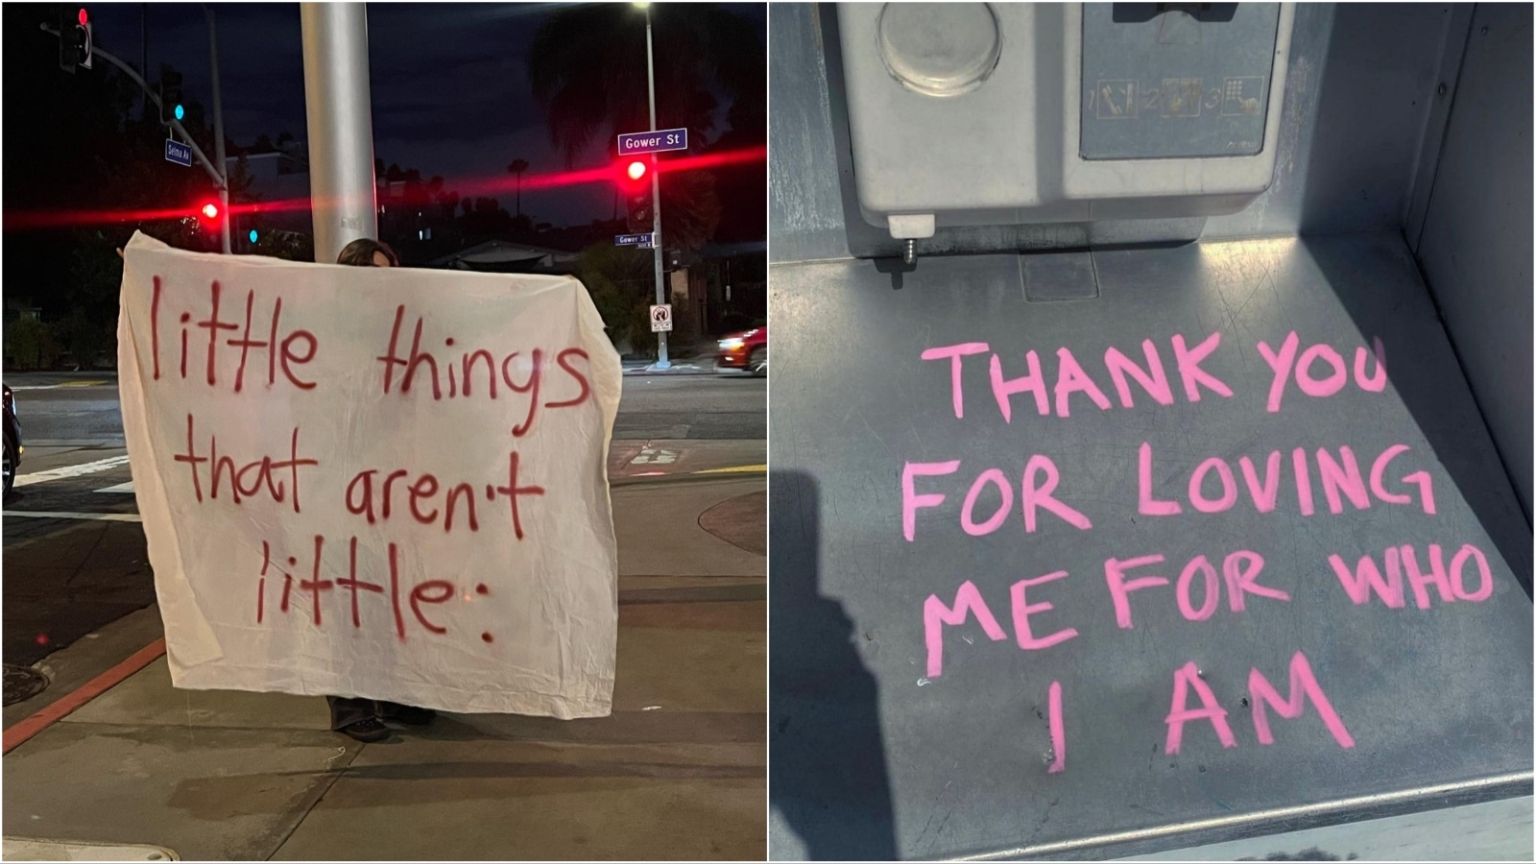 Selma Av
Gower St
Gower St
little things
that aren't
little:
1 2 3
THANK YOU
FOR LOVING
ME FOR WHO
I AM